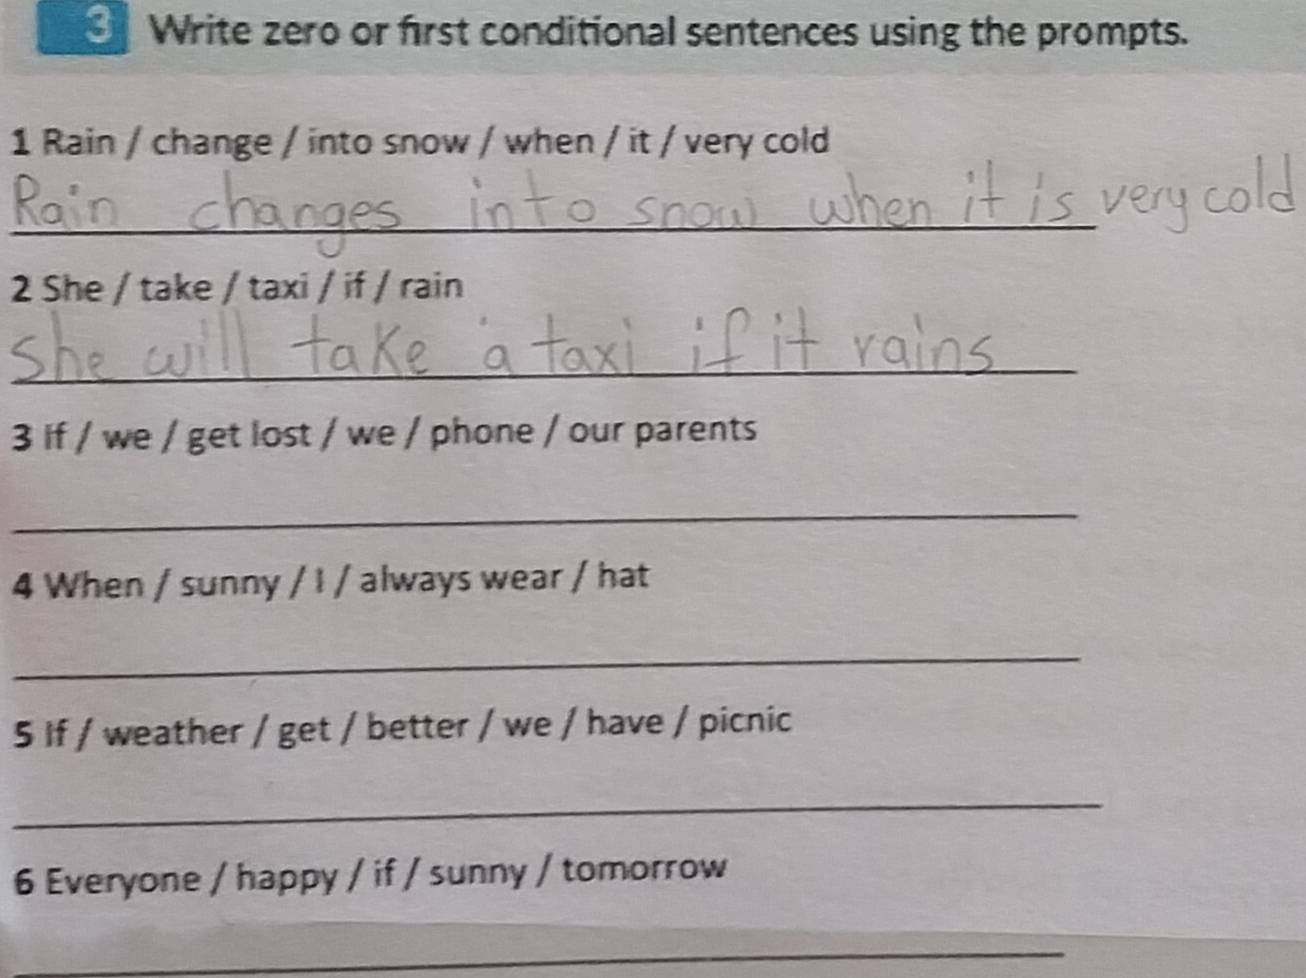 3 Write zero or first conditional sentences using the prompts.
1 Rain / change / into snow / when / it / very cold
Rain changes into snow when it is very cold
2 She / take / taxi / if / rain
She will take a taxi if it rains
3 If / we / get lost / we / phone / our parents
4 When / sunny / I / always wear / hat
5 If / weather / get / better / we / have / picnic
6 Everyone / happy / if / sunny / tomorrow